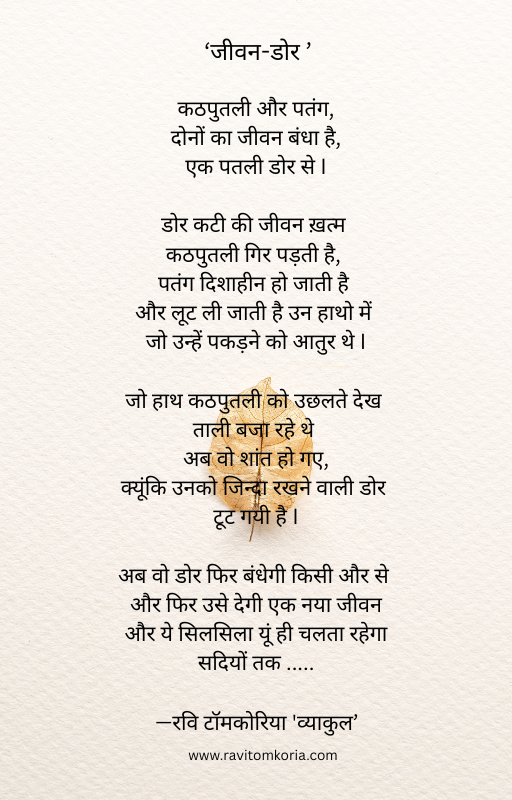 ‘जीवन-डोर ’
कठपुतली और पतंग,
दोनों का जीवन बंधा है,
एक पतली डोर से l
डोर कटी की जीवन ख़त्म
कठपुतली गिर पड़ती है,
पतंग दिशाहीन हो जाती है
और लूट ली जाती है उन हाथो में
जो उन्हें पकड़ने को आतुर थे l
जो हाथ कठपुतली को उछलते देख
ताली बजा रहे थे
अब वो शांत हो गए,
क्यूंकि उनको जिन्दा रखने वाली डोर
टूट गयी है l
अब वो डोर फिर बंधेगी किसी और से
और फिर उसे देगी एक नया जीवन
और ये सिलसिला यूं ही चलता रहेगा
सदियों तक .....
—रवि टॉमकोरिया 'व्याकुल’
www.ravitomkoria.com